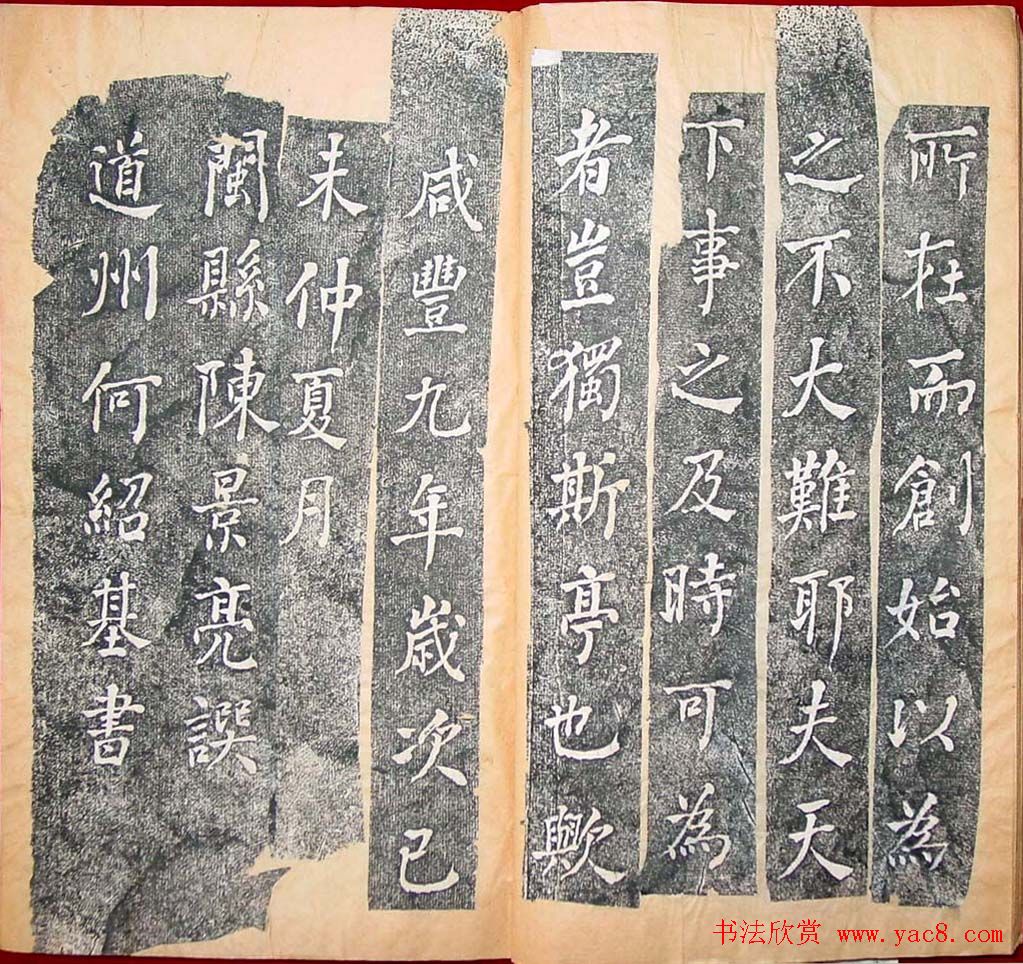 所在而創始以為
之不大難耶夫天
下事之及時可為
者豈獨斯亭也歟
咸豐九年歲次己
未仲夏月
閩縣陳景亮譔
道州何紹基書
书法欣赏 www.yac8.com